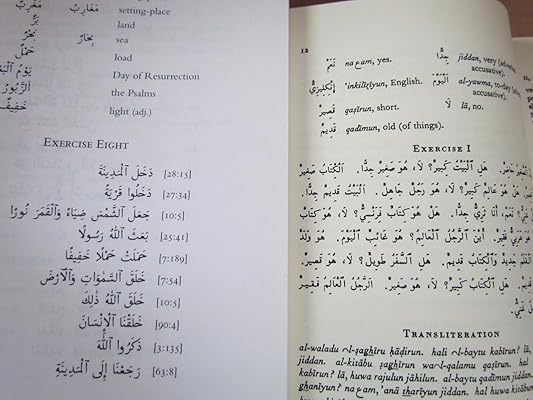 مَغَارِبُ مَغْرِبٌ setting-place
بَرٌّ land
بِحَارٌ بَحْرٌ sea
حَمْلٌ load
يَوْمُ Day of Resurrection
الزَّبُورُ the Psalms
خَفِيفٌ light (adj.)
EXERCISE EIGHT
دَخَلَ ٱلْمَدِينَةَ [28:15]
دَخَلُوا قَرْيَةً [27:34]
جَعَلَ ٱلشَّمْسَ ضِيَاءً وَٱلْقَمَرَ نُورًا [10:5]
بَعَثَ ٱللَّهُ رَسُولًا [25:41]
حَمَلَتْ حَمْلًا خَفِيفًا [7:189]
خَلَقَ ٱلسَّمَوَاتِ وَٱلْأَرْضَ [7:54]
خَلَقَ ٱللَّهُ ذَلِكَ [10:5]
خَلَقْنَا ٱلْإِنْسَانَ [90:4]
ذَكَرُوا ٱللَّهَ [3:135]
رَجَعْنَا إِلَى ٱلْمَدِينَةِ [63:8]
12
نَعَمْ naʿam, yes. جِدًّا jiddan, very (adverbial
accusative).
إِنْكِلِيزِيٌّ 'inkilīzīyun, English. اَلْيَوْمَ al-yawma, to-day
accusative).
قَصِيرٌ qaṣīrun, short. لَا lā, no.
قَدِيمٌ qadīmun, old (of things).
EXERCISE I
الصَّغِيرُ حَاضِرٌ. هَلِ الْبَيْتُ كَبِيرٌ؟ لَا، هُوَ صَغِيرٌ جِدًّا. اَلْكِتَابُ صَغِيرٌ
هَلْ هُوَ عَالِمٌ كَبِيرٌ؟ لَا، هُوَ رَجُلٌ جَاهِلٌ. اَلْبَيْتُ قَدِيمٌ جِدًّا.
نَعَمْ، أَنَا ثَرِيٌّ جِدًّا. هَلْ هُوَ كِتَابٌ فَرَنْسِيٌّ؟ لَا، هُوَ كِتَابٌ
هُوَ عَرَبِيٌّ فَقِيرٌ. أَيْنَ الرَّجُلُ الْعَالِمُ؟ هُوَ غَائِبٌ الْيَوْمَ. هُوَ وَلَدٌ
جَدِيدٌ وَالْكِتَابُ قَدِيمٌ. هَلِ السَّفَرُ طَوِيلٌ؟ لَا، هُوَ قَصِيرٌ.
الْكِتَابُ كَبِيرٌ؟ لَا، هُوَ صَغِيرٌ. اَلرَّجُلُ الْعَالِمُ فَقِيرٌ
غَنِيٌّ.
TRANSLITERATION
al-waladu ṣ-ṣaghīru ḥāḍirun. hali l-baytu kabīrun? lā,
jiddan. al-kitābu ṣaghīrun wal-qalamu qaṣīrun. hal
kabīrun? lā, huwa rajulun jāhilun. al-baytu qadīmun jiddan.
ghanīyun? naʿam, 'anā tharīyun jiddan. hal huwa kitābun